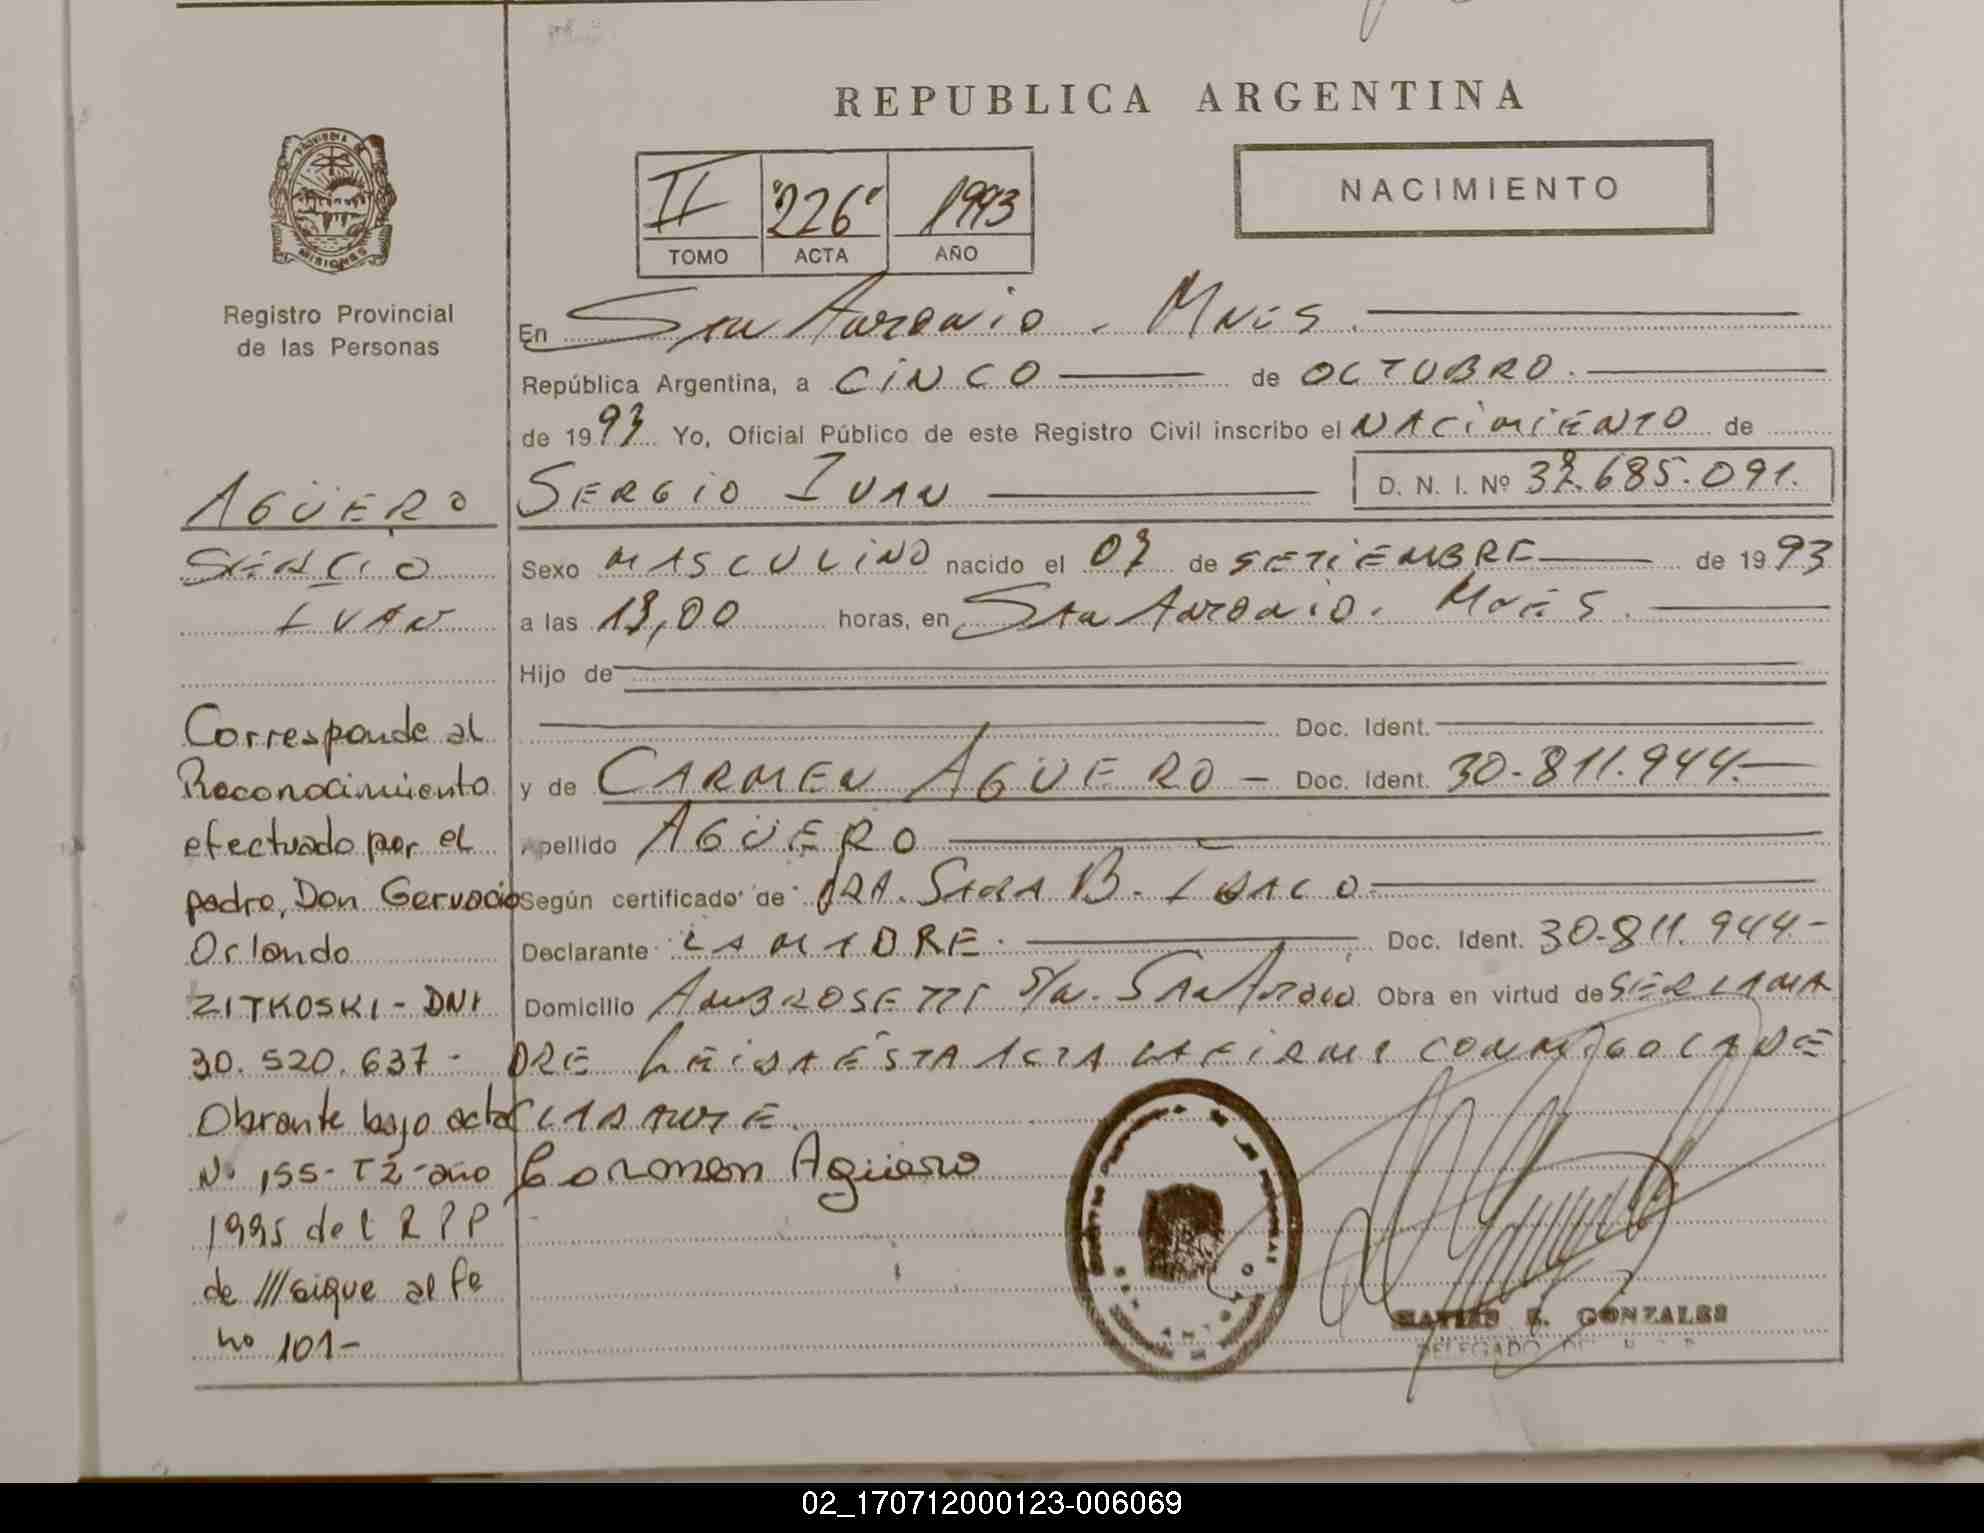 REPUBLICA ARGENTINA
PROVINCIA DE
MISIONES
Registro Provincial
de las Personas
II 226 1993
TOMO ACTA AÑO
NACIMIENTO
En San Antonio. Mnes.
República Argentina, a CINCO de OCTUBRO.
de 1993. Yo, Oficial Público de este Registro Civil inscribo el NACIMIENTO de
SERGIO IVAN
D. N. I. Nº .685.091.
Sexo MASCULINO nacido el de SETIEMBRE de 1993
a las horas, en San Antonio. Mnes.
Hijo de
Doc. Ident.
y de CARMEN AGÜERO - Doc. Ident. 30-811.944.-
Apellido AGÜERO
Según certificado de DRA. SARA B.
Declarante LA MADRE. Doc. Ident. 30-811.944.-
Domicilio AMBROSETTI S/N. San Antonio. Obra en virtud de SER LA MA
DRE LEIDA ESTA ACTA LA FIRMA CONMIGO LA DE
CLARANTE.
Carmen Agüero
GONZALES
DELEGADO
AGÜERO
SERGIO
IVAN
Corresponde al
Reconocimiento
efectuado por el
padre, Don Gervacio
Orlando
ZITKOSKI - DNI
30.520.637 -
Obrante bajo acta
Nº 155 - T2 - año
1995 del RPP
de al fo
no 101-
02_170712000123-006069